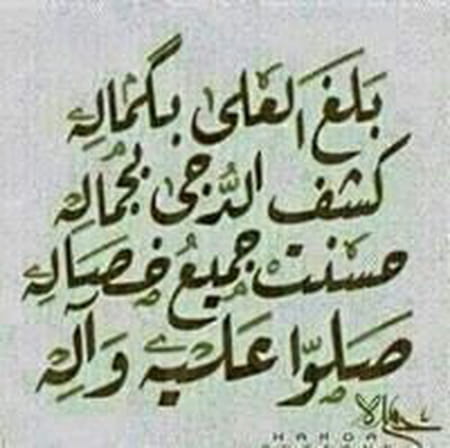 بَلَغَ العُلىٰ بِكَمالِهِ
كشف الدُّجىٰ بِجَمالِهِ
حسنت جميعُ خِصالِهِ
صَلّوا عَلَيهِ وَآلِهِ
HAMDA